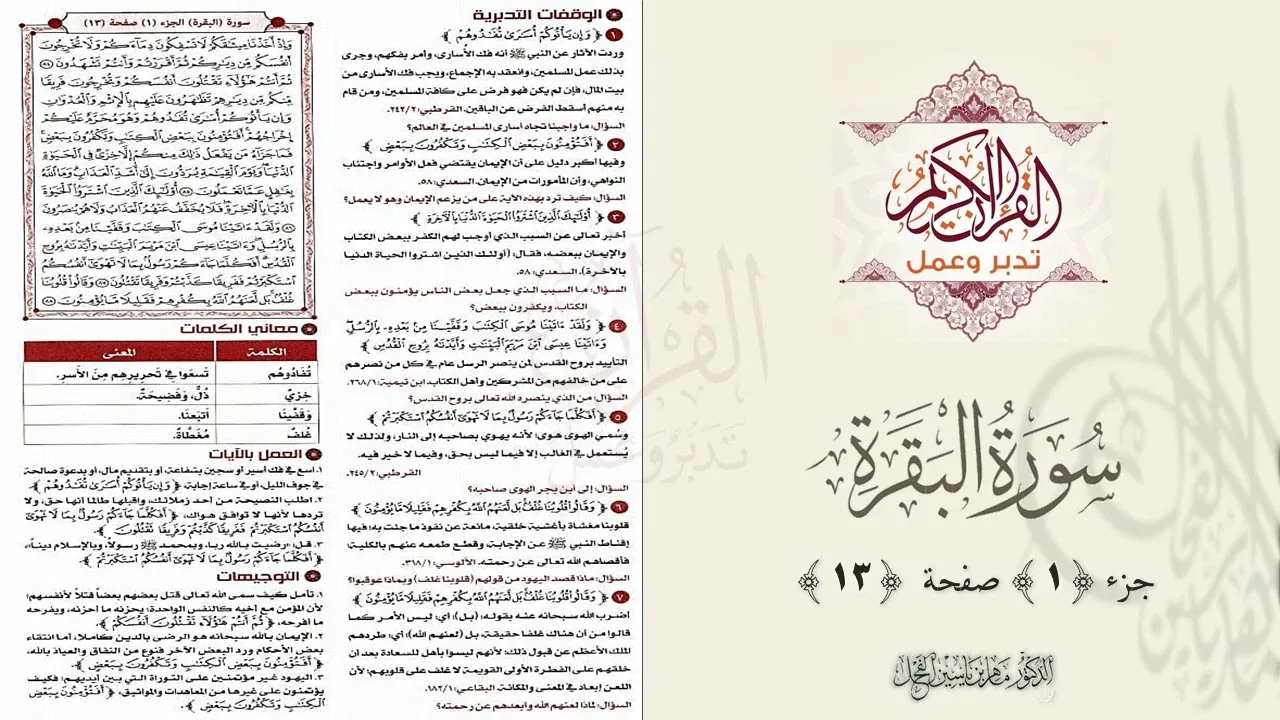 سورة (البقرة) الجزء (١) صفحة (١٣)
وَإِذْ أَخَذْنَا مِيثَاقَكُمْ لَا تَسْفِكُونَ دِمَاءَكُمْ وَلَا تُخْرِجُونَ
أَنفُسَكُم مِّن دِيَارِكُمْ ثُمَّ أَقْرَرْتُمْ وَأَنتُمْ تَشْهَدُونَ ٨٤
ثُمَّ أَنتُمْ هَٰؤُلَاءِ تَقْتُلُونَ أَنفُسَكُمْ وَتُخْرِجُونَ فَرِيقًا
مِّنكُم مِّن دِيَارِهِمْ تَظَاهَرُونَ عَلَيْهِم بِالْإِثْمِ وَالْعُدْوَانِ
وَإِن يَأْتُوكُمْ أُسَارَىٰ تُفَادُوهُمْ وَهُوَ مُحَرَّمٌ عَلَيْكُمْ
إِخْرَاجُهُمْ أَفَتُؤْمِنُونَ بِبَعْضِ الْكِتَابِ وَتَكْفُرُونَ بِبَعْضٍ
فَمَا جَزَاءُ مَن يَفْعَلُ ذَٰلِكَ مِنكُمْ إِلَّا خِزْيٌ فِي الْحَيَاةِ
الدُّنْيَا وَيَوْمَ الْقِيَامَةِ يُرَدُّونَ إِلَىٰ أَشَدِّ الْعَذَابِ وَمَا اللَّهُ
بِغَافِلٍ عَمَّا تَعْمَلُونَ ٨٥ أُولَٰئِكَ الَّذِينَ اشْتَرَوُا الْحَيَاةَ
الدُّنْيَا بِالْآخِرَةِ فَلَا يُخَفَّفُ عَنْهُمُ الْعَذَابُ وَلَا هُمْ يُنصَرُونَ
٨٦ وَلَقَدْ آتَيْنَا مُوسَى الْكِتَابَ وَقَفَّيْنَا مِن بَعْدِهِ
بِالرُّسُلِ وَآتَيْنَا عِيسَى ابْنَ مَرْيَمَ الْبَيِّنَاتِ وَأَيَّدْنَاهُ بِرُوحِ
الْقُدُسِ أَفَكُلَّمَا جَاءَكُمْ رَسُولٌ بِمَا لَا تَهْوَىٰ أَنفُسُكُمُ
اسْتَكْبَرْتُمْ فَفَرِيقًا كَذَّبْتُمْ وَفَرِيقًا تَقْتُلُونَ ٨٧ وَقَالُوا قُلُوبُنَا
غُلْفٌ بَل لَّعَنَهُمُ اللَّهُ بِكُفْرِهِمْ فَقَلِيلًا مَّا يُؤْمِنُونَ ٨٨
معاني الكلمات
الكلمة المعنى
تُفَادُوهُم تَسعَوا فِي تَحرِيرِهِم مِنَ الأَسرِ.
خِزيٌ ذُلٌّ، وَفَضِيحَةٌ.
وَقَفَّينَا أَتبَعنَا.
غُلفٌ مُغَطَّاةٌ.
العمل بالآيات
١. اسع في فك أسير أو سجين بشفاعة أو بتقديم مال، أو بدعوة صالحة
في جوف الليل، أو في ساعة إجابة، ﴿ وَإِن يَأْتُوكُمْ أُسَارَىٰ تُفَادُوهُمْ ﴾
٢. اطلب النصيحة من أحد زملائك، واقبلها طالما أنها حق، ولا
تردها لأنها لا توافق هواك، ﴿ أَفَكُلَّمَا جَاءَكُمْ رَسُولٌ بِمَا لَا تَهْوَىٰ
أَنفُسُكُمُ اسْتَكْبَرْتُمْ فَفَرِيقًا كَذَّبْتُمْ وَفَرِيقًا تَقْتُلُونَ ﴾
٣. قل: «رضيت بالله ربا، وبمحمد ﷺ رسولاً، وبالإسلام ديناً»،
﴿ أَفَكُلَّمَا جَاءَكُمْ رَسُولٌ بِمَا لَا تَهْوَىٰ أَنفُسُكُمُ اسْتَكْبَرْتُمْ ﴾.
التوجيهات
١. تأمل كيف سمى الله تعالى قتل بعضهم بعضاً قتلاً لأنفسهم؛
لأن المؤمن مع أخيه كالنفس الواحدة؛ يحزنه ما أحزنه، ويفرحه
ما أفرحه، ﴿ ثُمَّ أَنتُمْ هَٰؤُلَاءِ تَقْتُلُونَ أَنفُسَكُمْ ﴾
٢. الإيمان بالله سبحانه هو الرضى بالدين كاملا، أما انتقاء
بعض الأحكام ورد البعض الآخر فنوع من النفاق والعياذ بالله،
﴿ أَفَتُؤْمِنُونَ بِبَعْضِ الْكِتَابِ وَتَكْفُرُونَ بِبَعْضٍ ﴾
٣. اليهود غير مؤتمنين على التوراة التي بين أيديهم؛ فكيف
يؤتمنون على غيرها من المعاهدات والمواثيق، ﴿ أَفَتُؤْمِنُونَ بِبَعْضِ
الْكِتَابِ وَتَكْفُرُونَ بِبَعْضٍ ﴾.
الوقفات التدبرية
١ ﴿ وَإِن يَأْتُوكُمْ أُسَارَىٰ تُفَادُوهُمْ ﴾
وردت الآثار عن النبي ﷺ أنه فك الأسارى، وأمر بفكهم، وجرى
بذلك عمل المسلمين، وانعقد به الإجماع، ويجب فك الأسارى من
بيت المال، فإن لم يكن فهو فرض على كافة المسلمين، ومن قام
به منهم أسقط الفرض عن الباقين. القرطبي: ٢٤٢/٢.
السؤال: ما واجبنا تجاه أسارى المسلمين في العالم؟
٢ ﴿ أَفَتُؤْمِنُونَ بِبَعْضِ الْكِتَابِ وَتَكْفُرُونَ بِبَعْضٍ ﴾
وفيها أكبر دليل على أن الإيمان يقتضي فعل الأوامر واجتناب
النواهي، وأن المأمورات من الإيمان. السعدي: ٥٨.
السؤال: كيف ترد بهذه الآية على من يزعم الإيمان وهو لا يعمل؟
٣ ﴿ أُولَٰئِكَ الَّذِينَ اشْتَرَوُا الْحَيَاةَ الدُّنْيَا بِالْآخِرَةِ ﴾
أخبر تعالى عن السبب الذي أوجب لهم الكفر ببعض الكتاب
والإيمان ببعضه، فقال: (أولئك الذين اشتروا الحياة الدنيا
بالآخرة). السعدي: ٥٨.
السؤال: ما السبب الذي جعل بعض الناس يؤمنون ببعض
الكتاب، ويكفرون ببعض؟
٤ ﴿ وَلَقَدْ آتَيْنَا مُوسَى الْكِتَابَ وَقَفَّيْنَا مِن بَعْدِهِ بِالرُّسُلِ
وَآتَيْنَا عِيسَى ابْنَ مَرْيَمَ الْبَيِّنَاتِ وَأَيَّدْنَاهُ بِرُوحِ الْقُدُسِ ﴾
التأييد بروح القدس لمن ينصر الرسل عام في كل من نصرهم
على من خالفهم من المشركين وأهل الكتاب ابن تيمية: ٢٦٨/١.
السؤال: من الذي ينصره الله تعالى بروح القدس؟
٥ ﴿ أَفَكُلَّمَا جَاءَكُمْ رَسُولٌ بِمَا لَا تَهْوَىٰ أَنفُسُكُمُ اسْتَكْبَرْتُمْ ﴾
وسُمي الهوى هوى؛ لأنه يهوي بصاحبه إلى النار، ولذلك لا
يُستعمل في الغالب إلا فيما ليس بحق، وفيما لا خير فيه.
القرطبي: ٢٤٥/٢.
السؤال: إلى أين يجر الهوى صاحبه؟
٦ ﴿ وَقَالُوا قُلُوبُنَا غُلْفٌ بَل لَّعَنَهُمُ اللَّهُ بِكُفْرِهِمْ فَقَلِيلًا مَّا يُؤْمِنُونَ ﴾
قلوبنا مغشاة بأغشية خلقية، مانعة عن نفوذ ما جئت به؛ فيها
إقناط النبي ﷺ عن الإجابة، وقطع طمعه عنهم بالكلية؛
فأقصاهم الله تعالى عن رحمته. الألوسي: ٣١٨/١.
السؤال: ماذا قصد اليهود من قولهم (قلوبنا غلف) وبماذا عوقبوا؟
٧ ﴿ وَقَالُوا قُلُوبُنَا غُلْفٌ بَل لَّعَنَهُمُ اللَّهُ بِكُفْرِهِمْ فَقَلِيلًا مَّا يُؤْمِنُونَ ﴾
أضرب الله سبحانه عنه بقوله: (بل)؛ أي: ليس الأمر كما
قالوا من أن هناك غلفا حقيقة، بل (لعنهم الله)؛ أي: طردهم
الملك الأعظم عن قبول ذلك؛ لأنهم ليسوا بأهل للسعادة بعد أن
خلقهم على الفطرة الأولى القويمة لا غلف على قلوبهم؛ لأن
اللعن إبعاد في المعنى والمكانة. البقاعي: ١٨٢/١.
السؤال: لماذا لعنهم الله وأبعدهم عن رحمته؟
القرآن الكريم
تدبر وعمل
سُورَةُ البَقَرَةِ
جزء ﴿ ١ ﴾ صفحة ﴿ ١٣ ﴾
الدكتور ماهر بن ياسين الفحل
القرآن
تدبر وعمل